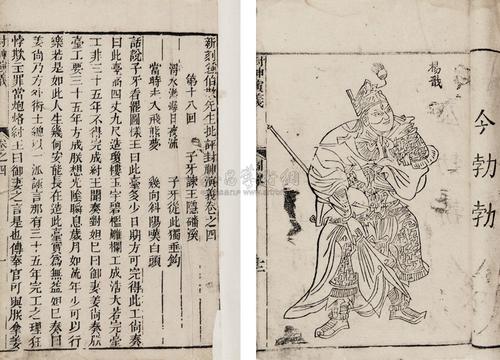 新刻鍾伯敬先生批評封神演義卷之四
第十八回 子牙諫主隱磻溪
渭水潺潺日夜流 子牙從此獨垂鈎
當時未入飛熊夢 幾向斜陽嘆白頭
話說子牙看罷圖樣王曰此臺多少日期方可完得此工尚奏
曰此臺高四丈九尺造瓊樓玉宇碧檻雕欄工成浩大若完臺
工非三十五年不得完成紂王聞奏對妲己曰御妻姜尚奏朕
臺工要三十五年方成朕想光陰瞬息歲月如流年少可以行
樂若是如此人生幾何安能長在造此臺實爲無益妲己奏曰
姜尚乃方外術士總以一派誣言那有三十五年完工之理狂
悖欺主罪當炮烙紂王曰御妻之言是也傳奉官可與朕拿姜
封神演義 卷之四
今勃勃
楊戩
封神演義